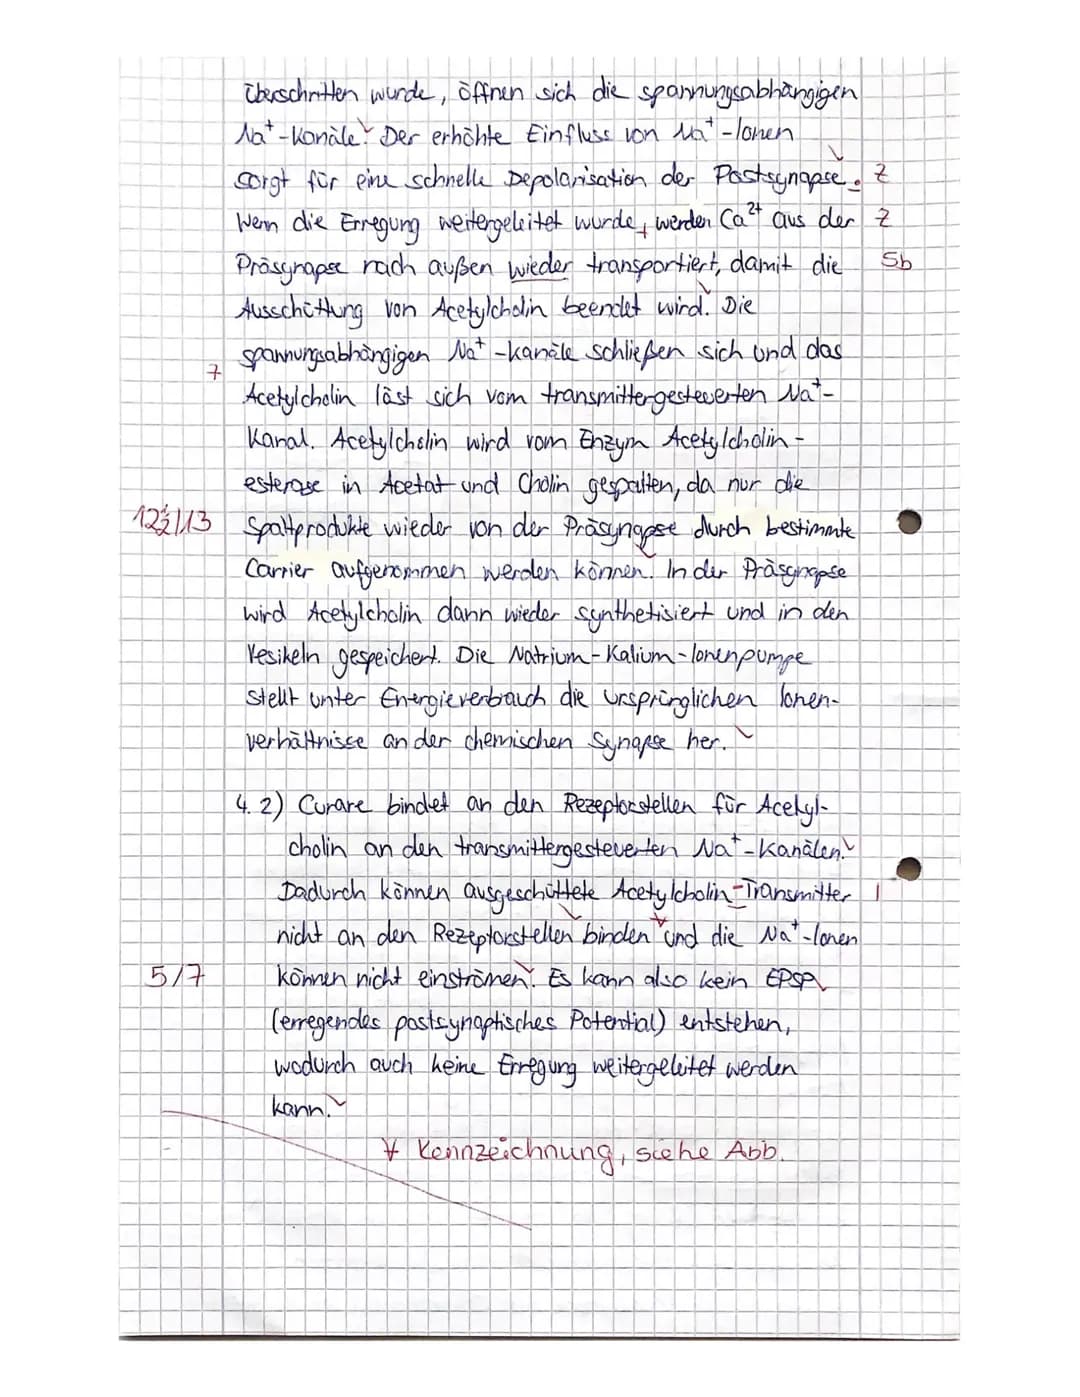 überschritten wurde, öffnen sich die spannungsabhängigen
Na⁺-Kanäle. Der erhöhte Einfluss von Na⁺-Ionen
sorgt für eine schnelle Depolarisation der Postsynapse. Z
Wenn die Erregung weitergeleitet wurde, werden Ca²⁺ aus der Z
Präsynapse nach außen wieder transportiert, damit die Sb
Ausschüttung von Acetylcholin beendet wird. Die
spannungsabhängigen Na⁺-Kanäle schließen sich und das
7
Acetylcholin läst sich vom transmittergesteuerten Na⁺-
Kanal. Acetylcholin wird vom Enzym Acetylcholin-
esterase in Acetat und Cholin gespalten, da nur die
12½/13 Spaltprodukte wieder von der Präsynapse durch bestimmte
Carrier aufgenommen werden können. In der Präsynapse
wird Acetylcholin dann wieder synthetisiert und in den
Vesikeln gespeichert. Die Natrium-Kalium-Ionenpumpe
stellt unter Energieverbauch die ursprünglichen Ionen-
verhältnisse an der chemischen Synapse her.
4. 2) Curare bindet an den Rezeptorstellen für Acetyl-
cholin an den transmittergesteuerten Na⁺-Kanälen.
Dadurch können ausgeschüttete Acetylcholin-Transmitter |
nicht an den Rezeptorstellen binden und die Na⁺-Ionen
5/7 können nicht einströmen. Es kann also kein EPSP
(erregendes postsynaptisches Potential) entstehen,
wodurch auch keine Erregung weitergeleitet werden
kann.
Kennzeichnung, siehe Abb.